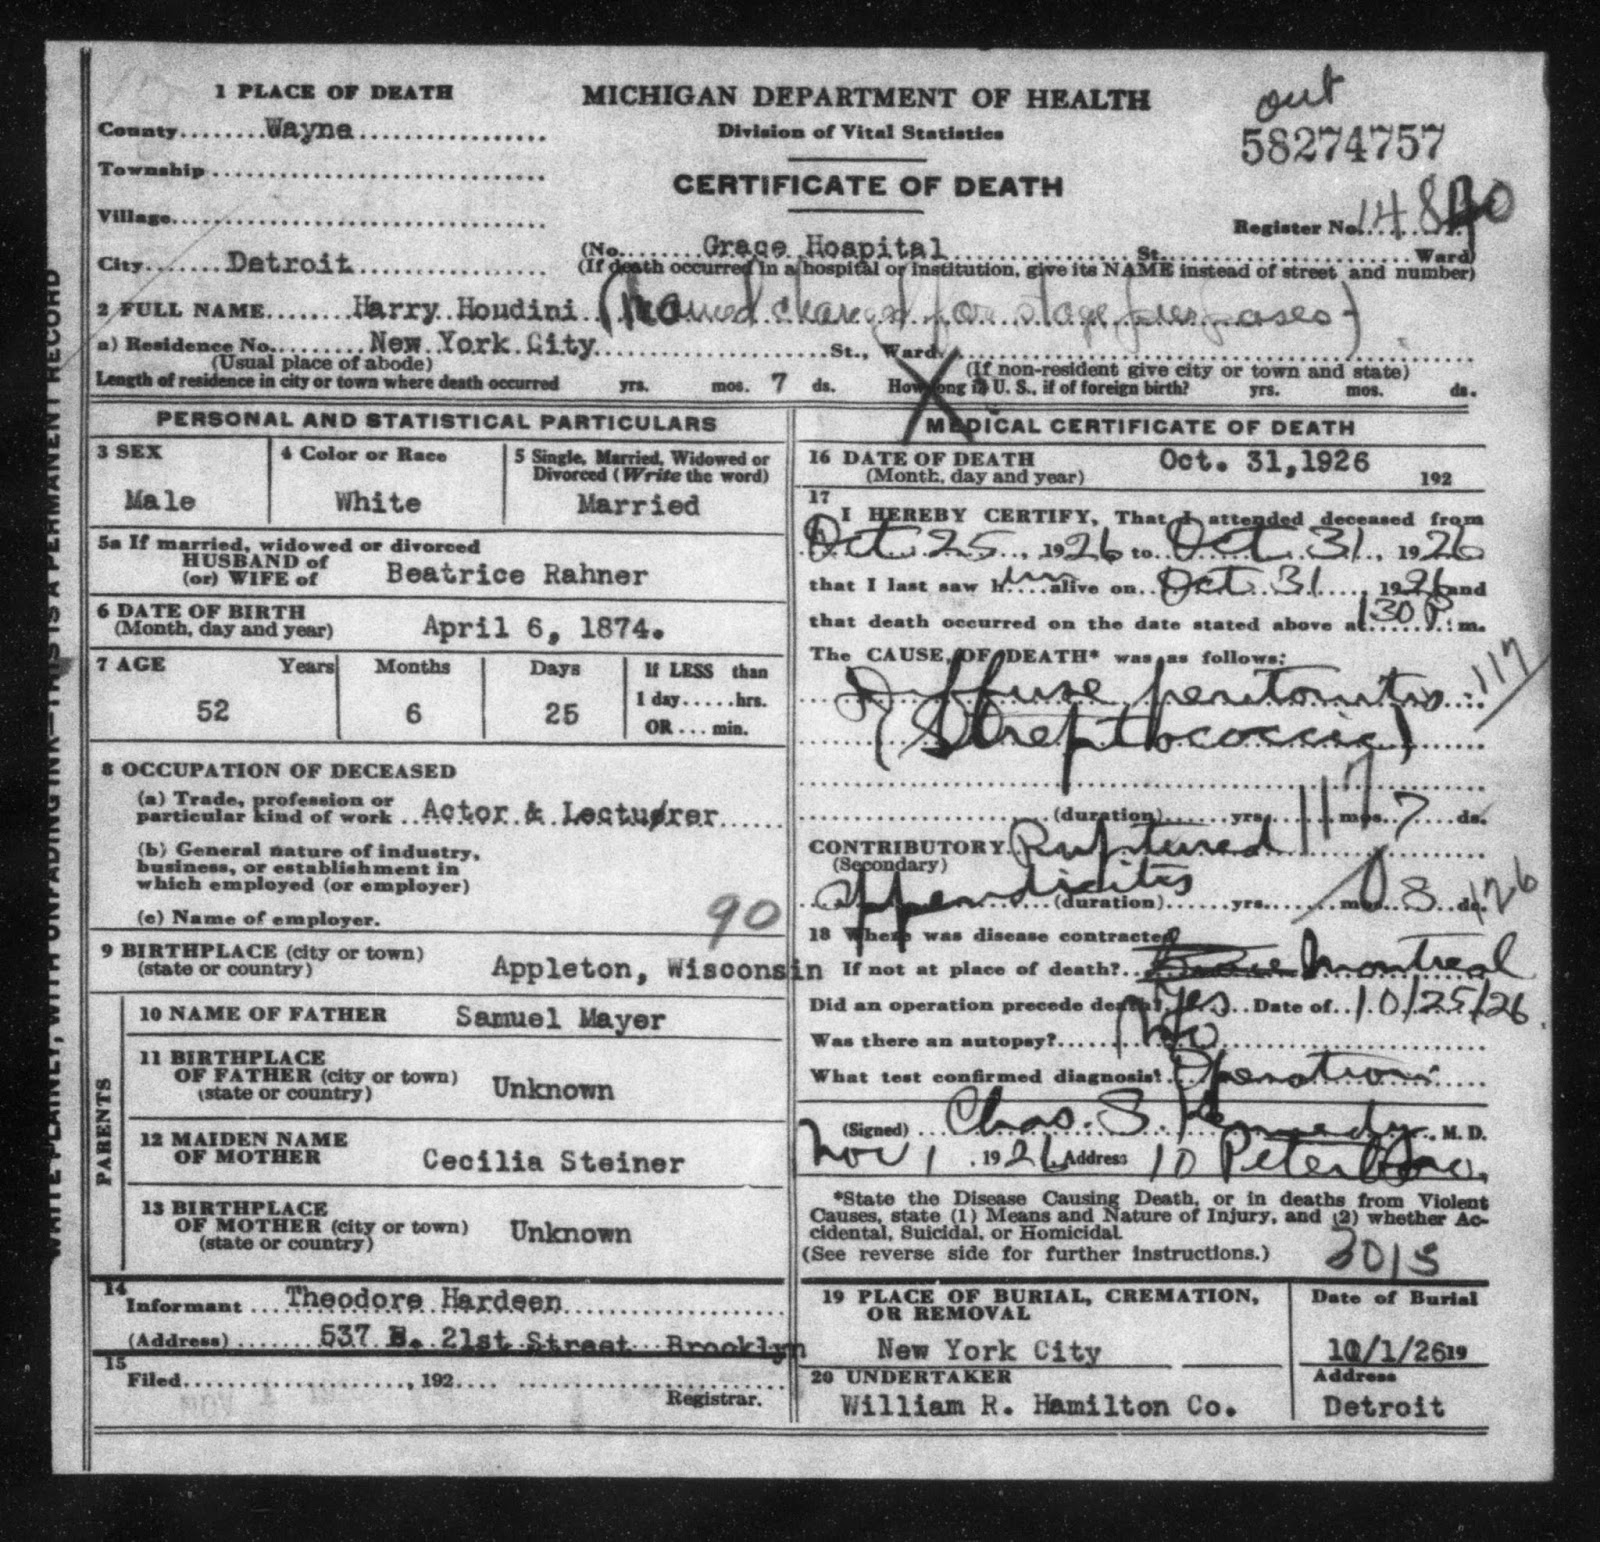 out
58274757
1 PLACE OF DEATH
County Wayne
Township
Village
City Detroit
MICHIGAN DEPARTMENT OF HEALTH
Division of Vital Statistics
CERTIFICATE OF DEATH
Register No. 148
(No. Grace Hospital St. Ward)
(If death occurred in a hospital or institution, give its NAME instead of street and number)
2 FULL NAME Harry Houdini (named changed for stage purposes)
a) Residence No. New York City St., Ward.
(Usual place of abode) (If non-resident give city or town and state)
Length of residence in city or town where death occurred yrs. mos. 7 ds. How long in U. S., if of foreign birth? yrs. mos. ds.
WRITE PLAINLY, WITH UNFADING INK—THIS IS A PERMANENT RECORD
PERSONAL AND STATISTICAL PARTICULARS
3 SEX
Male
4 Color or Race
White
5 Single, Married, Widowed or
Divorced (Write the word)
Married
5a If married, widowed or divorced
HUSBAND of
(or) WIFE of Beatrice Rahner
6 DATE OF BIRTH
(Month, day and year) April 6, 1874.
7 AGE Years Months Days If LESS than
1 day.....hrs.
OR...min.
52 6 25
8 OCCUPATION OF DECEASED
(a) Trade, profession or
particular kind of work Actor & Lecturer
(b) General nature of industry,
business, or establishment in
which employed (or employer)
(c) Name of employer.
90
9 BIRTHPLACE (city or town)
(state or country) Appleton, Wisconsin
PARENTS
10 NAME OF FATHER Samuel Mayer
11 BIRTHPLACE
OF FATHER (city or town)
(state or country) Unknown
12 MAIDEN NAME
OF MOTHER Cecilia Steiner
13 BIRTHPLACE
OF MOTHER (city or town)
(state or country) Unknown
14
Informant Theodore Hardeen
(Address) 537 E. 21st Street Brooklyn
15
Filed , 192
Registrar.
MEDICAL CERTIFICATE OF DEATH
16 DATE OF DEATH Oct. 31,1926
(Month, day and year) 192
17
I HEREBY CERTIFY, That I attended deceased from
Oct. 25, 1926 to Oct. 31, 1926
that I last saw him alive on Oct. 31, 1926 and
that death occurred on the date stated above at 130 P. m.
The CAUSE OF DEATH* was as follows:
Diffuse peritonitis 117
(Streptococcic)
(duration) yrs. mos. 7 ds.
117
CONTRIBUTORY Ruptured
(Secondary)
appendicitis
(duration) yrs. mos. 8 ds. 126
18 Where was disease contracted
If not at place of death? Montreal
Did an operation precede death? Yes Date of 10/25/26.
Was there an autopsy? No
What test confirmed diagnosis? Operation
(Signed) Chas. S. Kennedy, M. D.
Nov 1, 1926 Address 10 Peterboro.
*State the Disease Causing Death, or in deaths from Violent
Causes, state (1) Means and Nature of Injury, and (2) whether Ac-
cidental, Suicidal, or Homicidal.
(See reverse side for further instructions.) 3015
19 PLACE OF BURIAL, CREMATION,
OR REMOVAL
New York City
Date of Burial
1/26 19
20 UNDERTAKER
William R. Hamilton Co.
Address
Detroit